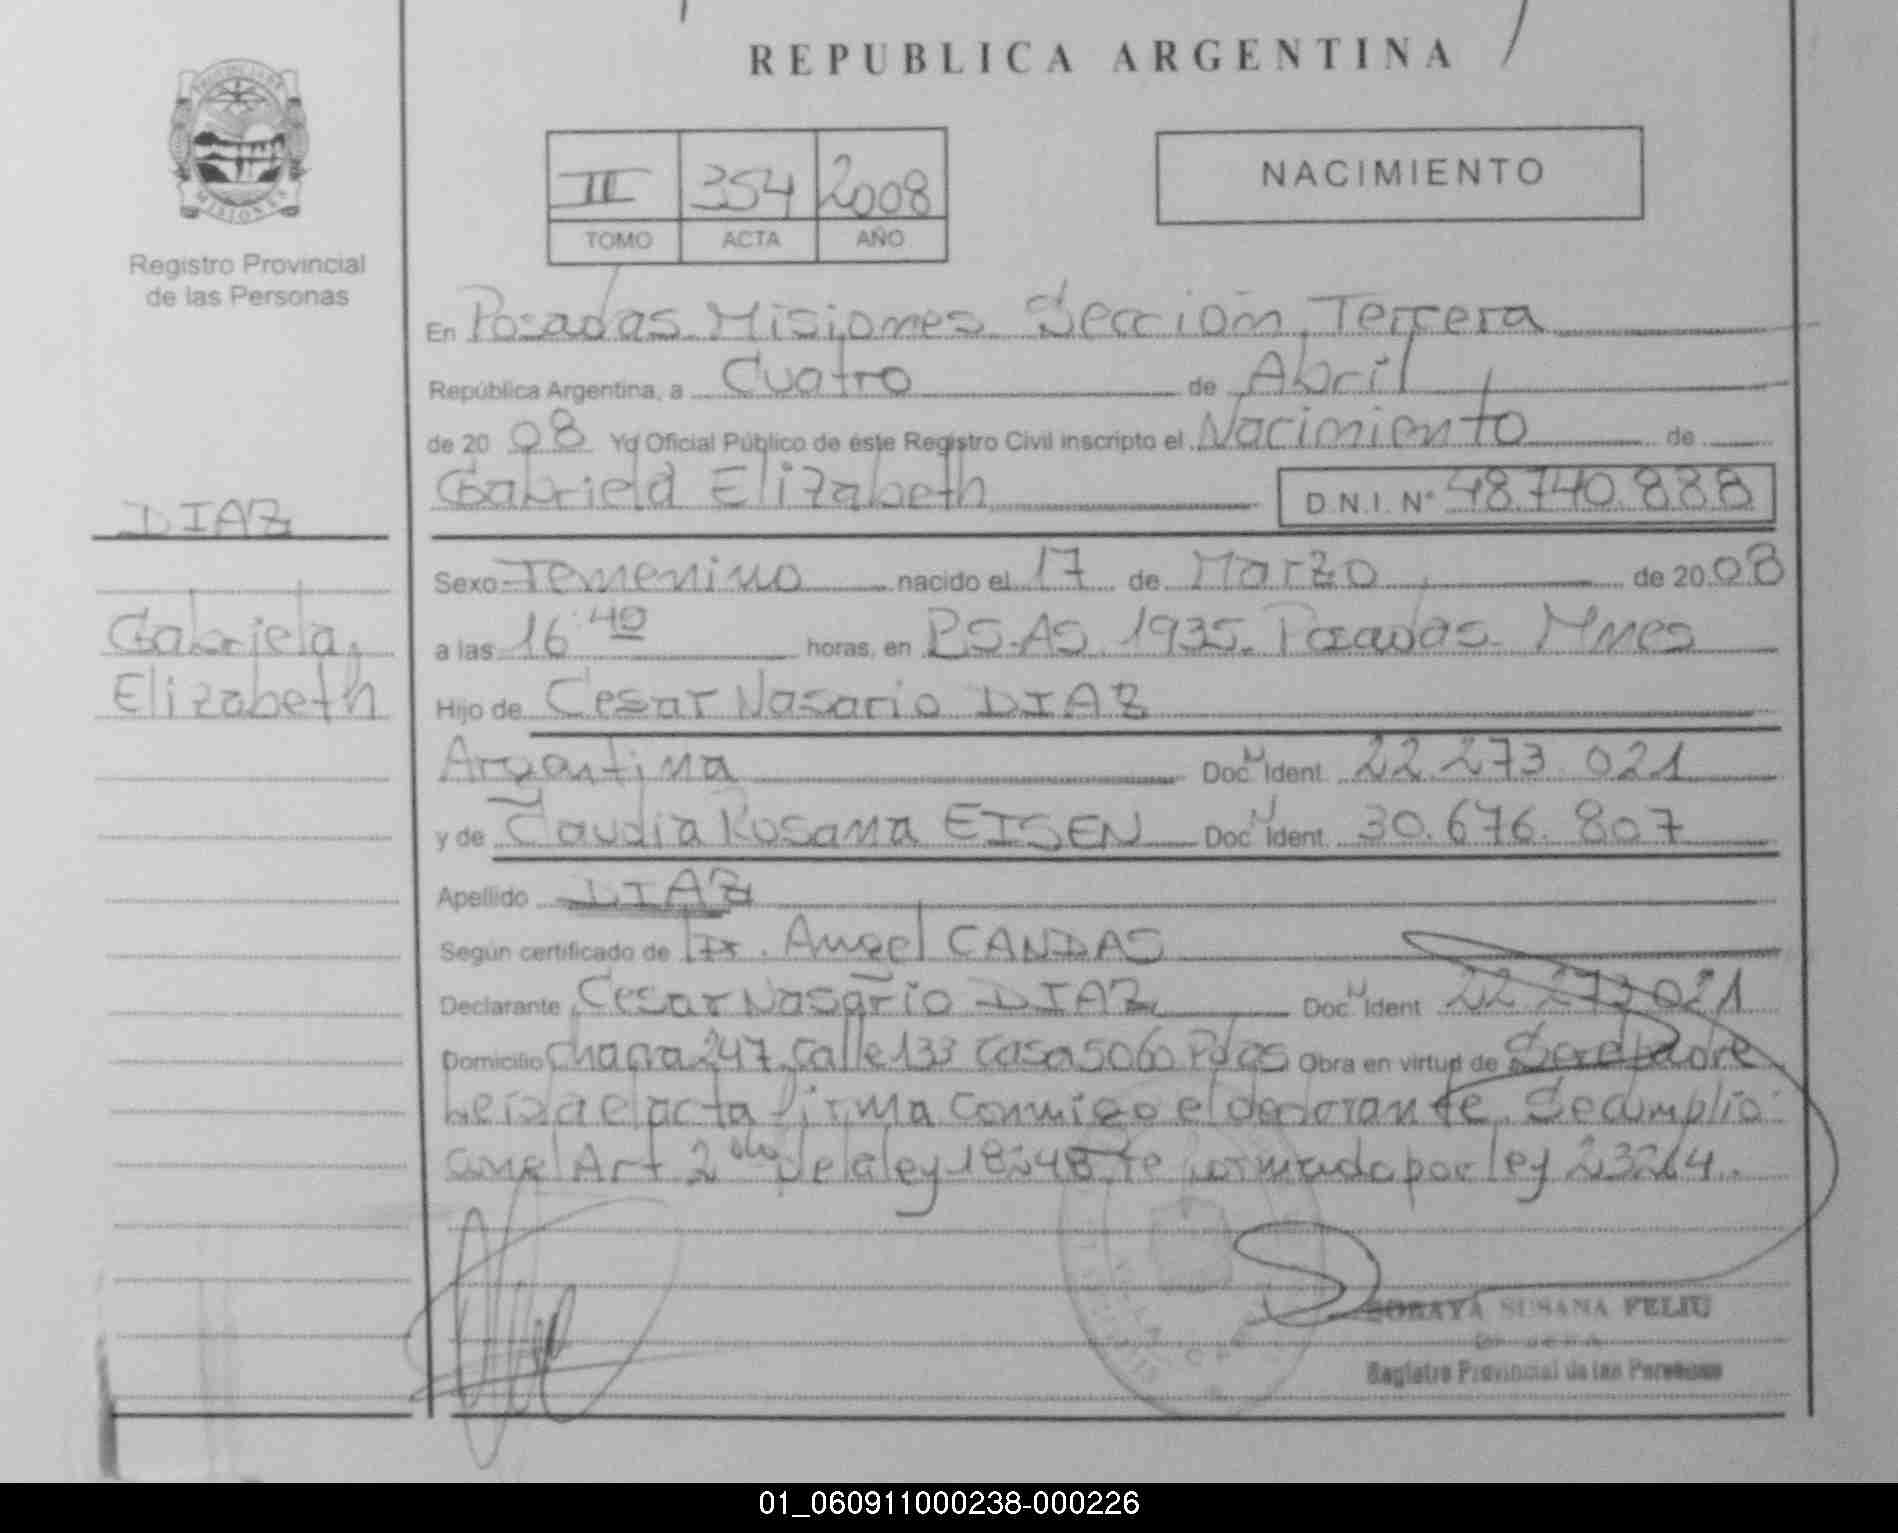 REPUBLICA ARGENTINA
PROVINCIA DE
MISIONES
Registro Provincial
de las Personas
II 354 2008
TOMO ACTA AÑO
NACIMIENTO
En Posadas Misiones Sección Tercera
República Argentina, a Cuatro de Abril
de 20 08 Yo Oficial Público de éste Registro Civil inscripto el Nacimiento de
Gabriela Elizabeth D.N.I. N° 48.740.888
DIAZ
Gabriela
Elizabeth
Sexo Femenino nacido el 17 de Marzo de 20 08
a las 16 40 horas, en PS.AS. 1935. Posadas Mnes
Hijo de Cesar Nasario DIAZ
Argentina Doc N Ident. 22.273.021
y de Claudia Rosana EISEN Doc N Ident. 30.676.807
Apellido DIAZ
Según certificado de Dr. Angel CANDAS
Declarante Cesar Nasario DIAZ Doc N Ident 22.273.021
Domicilio Chacra 247 Calle 133 Casa 5060 Pdas Obra en virtud de Ser el padre
Leida el acta firma conmigo el declarante. Se cumplio
con el Art 2do de la ley 18248 reformado por ley 23264.
SORAYA SUSANA FELIU
Registro Provincial de las Personas
01_060911000238-000226